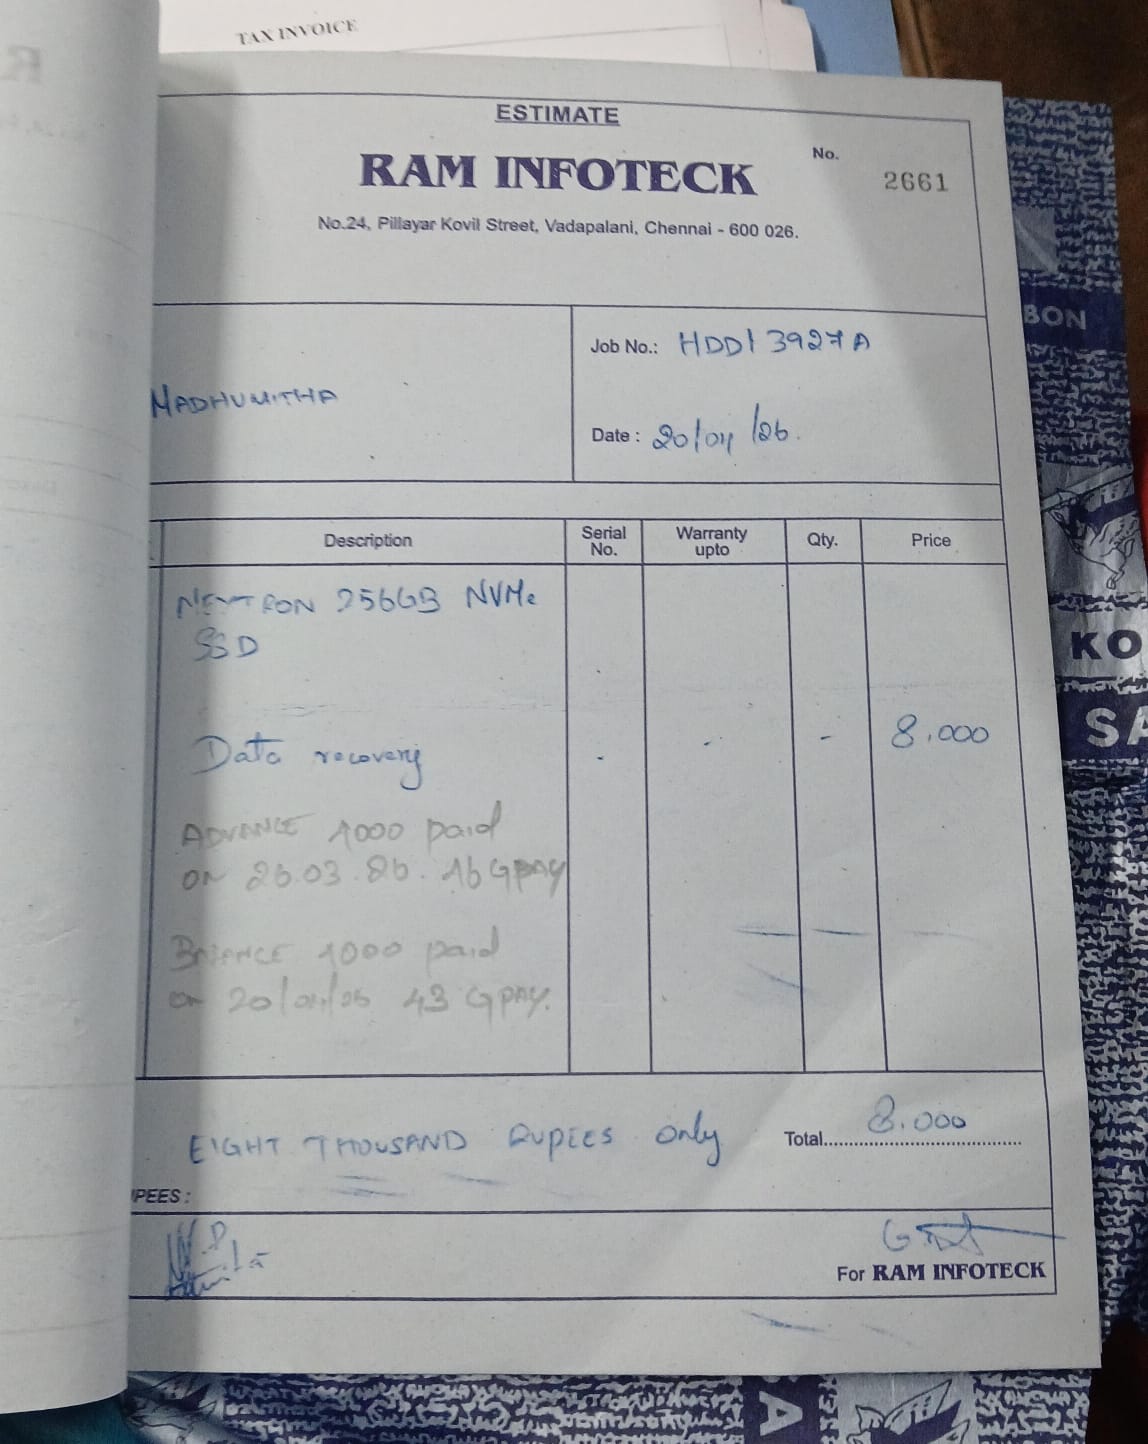 TAX INVOICE
ESTIMATE
RAM INFOTECK
No.
2661
No.24, Pillayar Kovil Street, Vadapalani, Chennai - 600 026.
MADHUMITHA
Job No.: HDD1 3927A
Date : 20/04/26.
Description Serial No. Warranty upto Qty. Price
256GB NVMe
SSD
Data recovery - - - 8.000
ADVANCE 1000 paid
ON 26.03.26. 16 GPAY
BALANCE 1000 paid
on 20/04/26 43 GPAY.
EIGHT THOUSAND RUPEES only
Total 8.000
PEES :
For RAM INFOTECK
BON
KO
SA